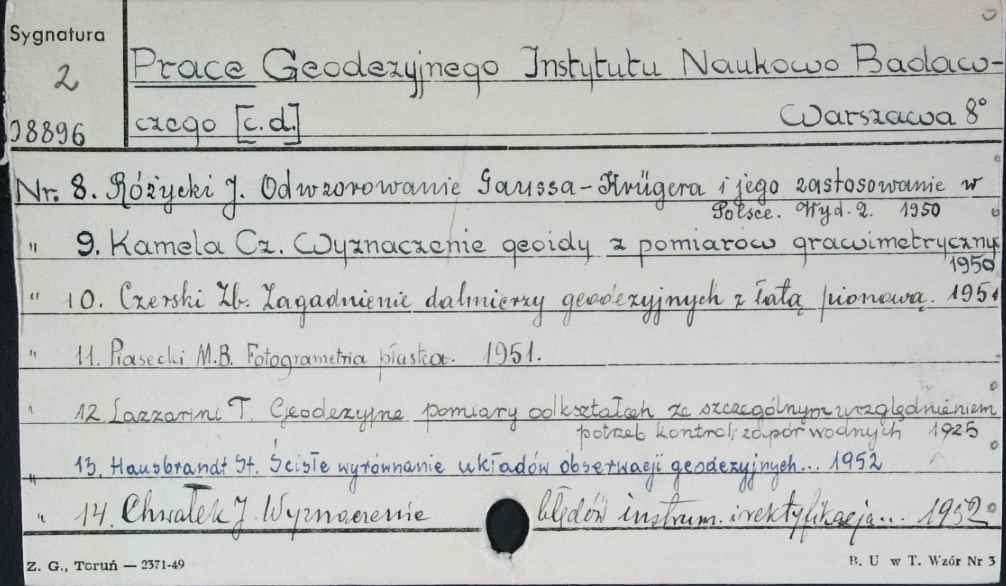 Sygnatura
2
08896
Prace Geodezyjnego Instytutu Naukowo Badaw-
czego [c.d.]
Warszawa 8°
Nr. 8. Różycki J. Odwzorowanie Gaussa-Krügera i jego zastosowanie w
Polsce. Wyd. 2. 1950
" 9. Kamela Cz. Wyznaczenie geoidy z pomiarów grawimetryczny
1950
" 10. Czerski Zb. Zagadnienie dalmierzy geodezyjnych z łatą pionową. 1951
" 11. Piasecki M.B. Fotogrametria płaska. 1951.
" 12 Lazzarini T. Geodezyjne pomiary odkształceń ze szczególnym uwzględnieniem
potrzeb kontroli zapór wodnych 1925
" 13. Hausbrandt St. Ścisłe wyrównanie układów obserwacji geodezyjnych... 1952
" 14. Chwałek J. Wyznaczenie błędów instrum. i rektyfikacja... 1952
Z. G., Toruń — 2371-49
B. U w T. Wzór Nr 3